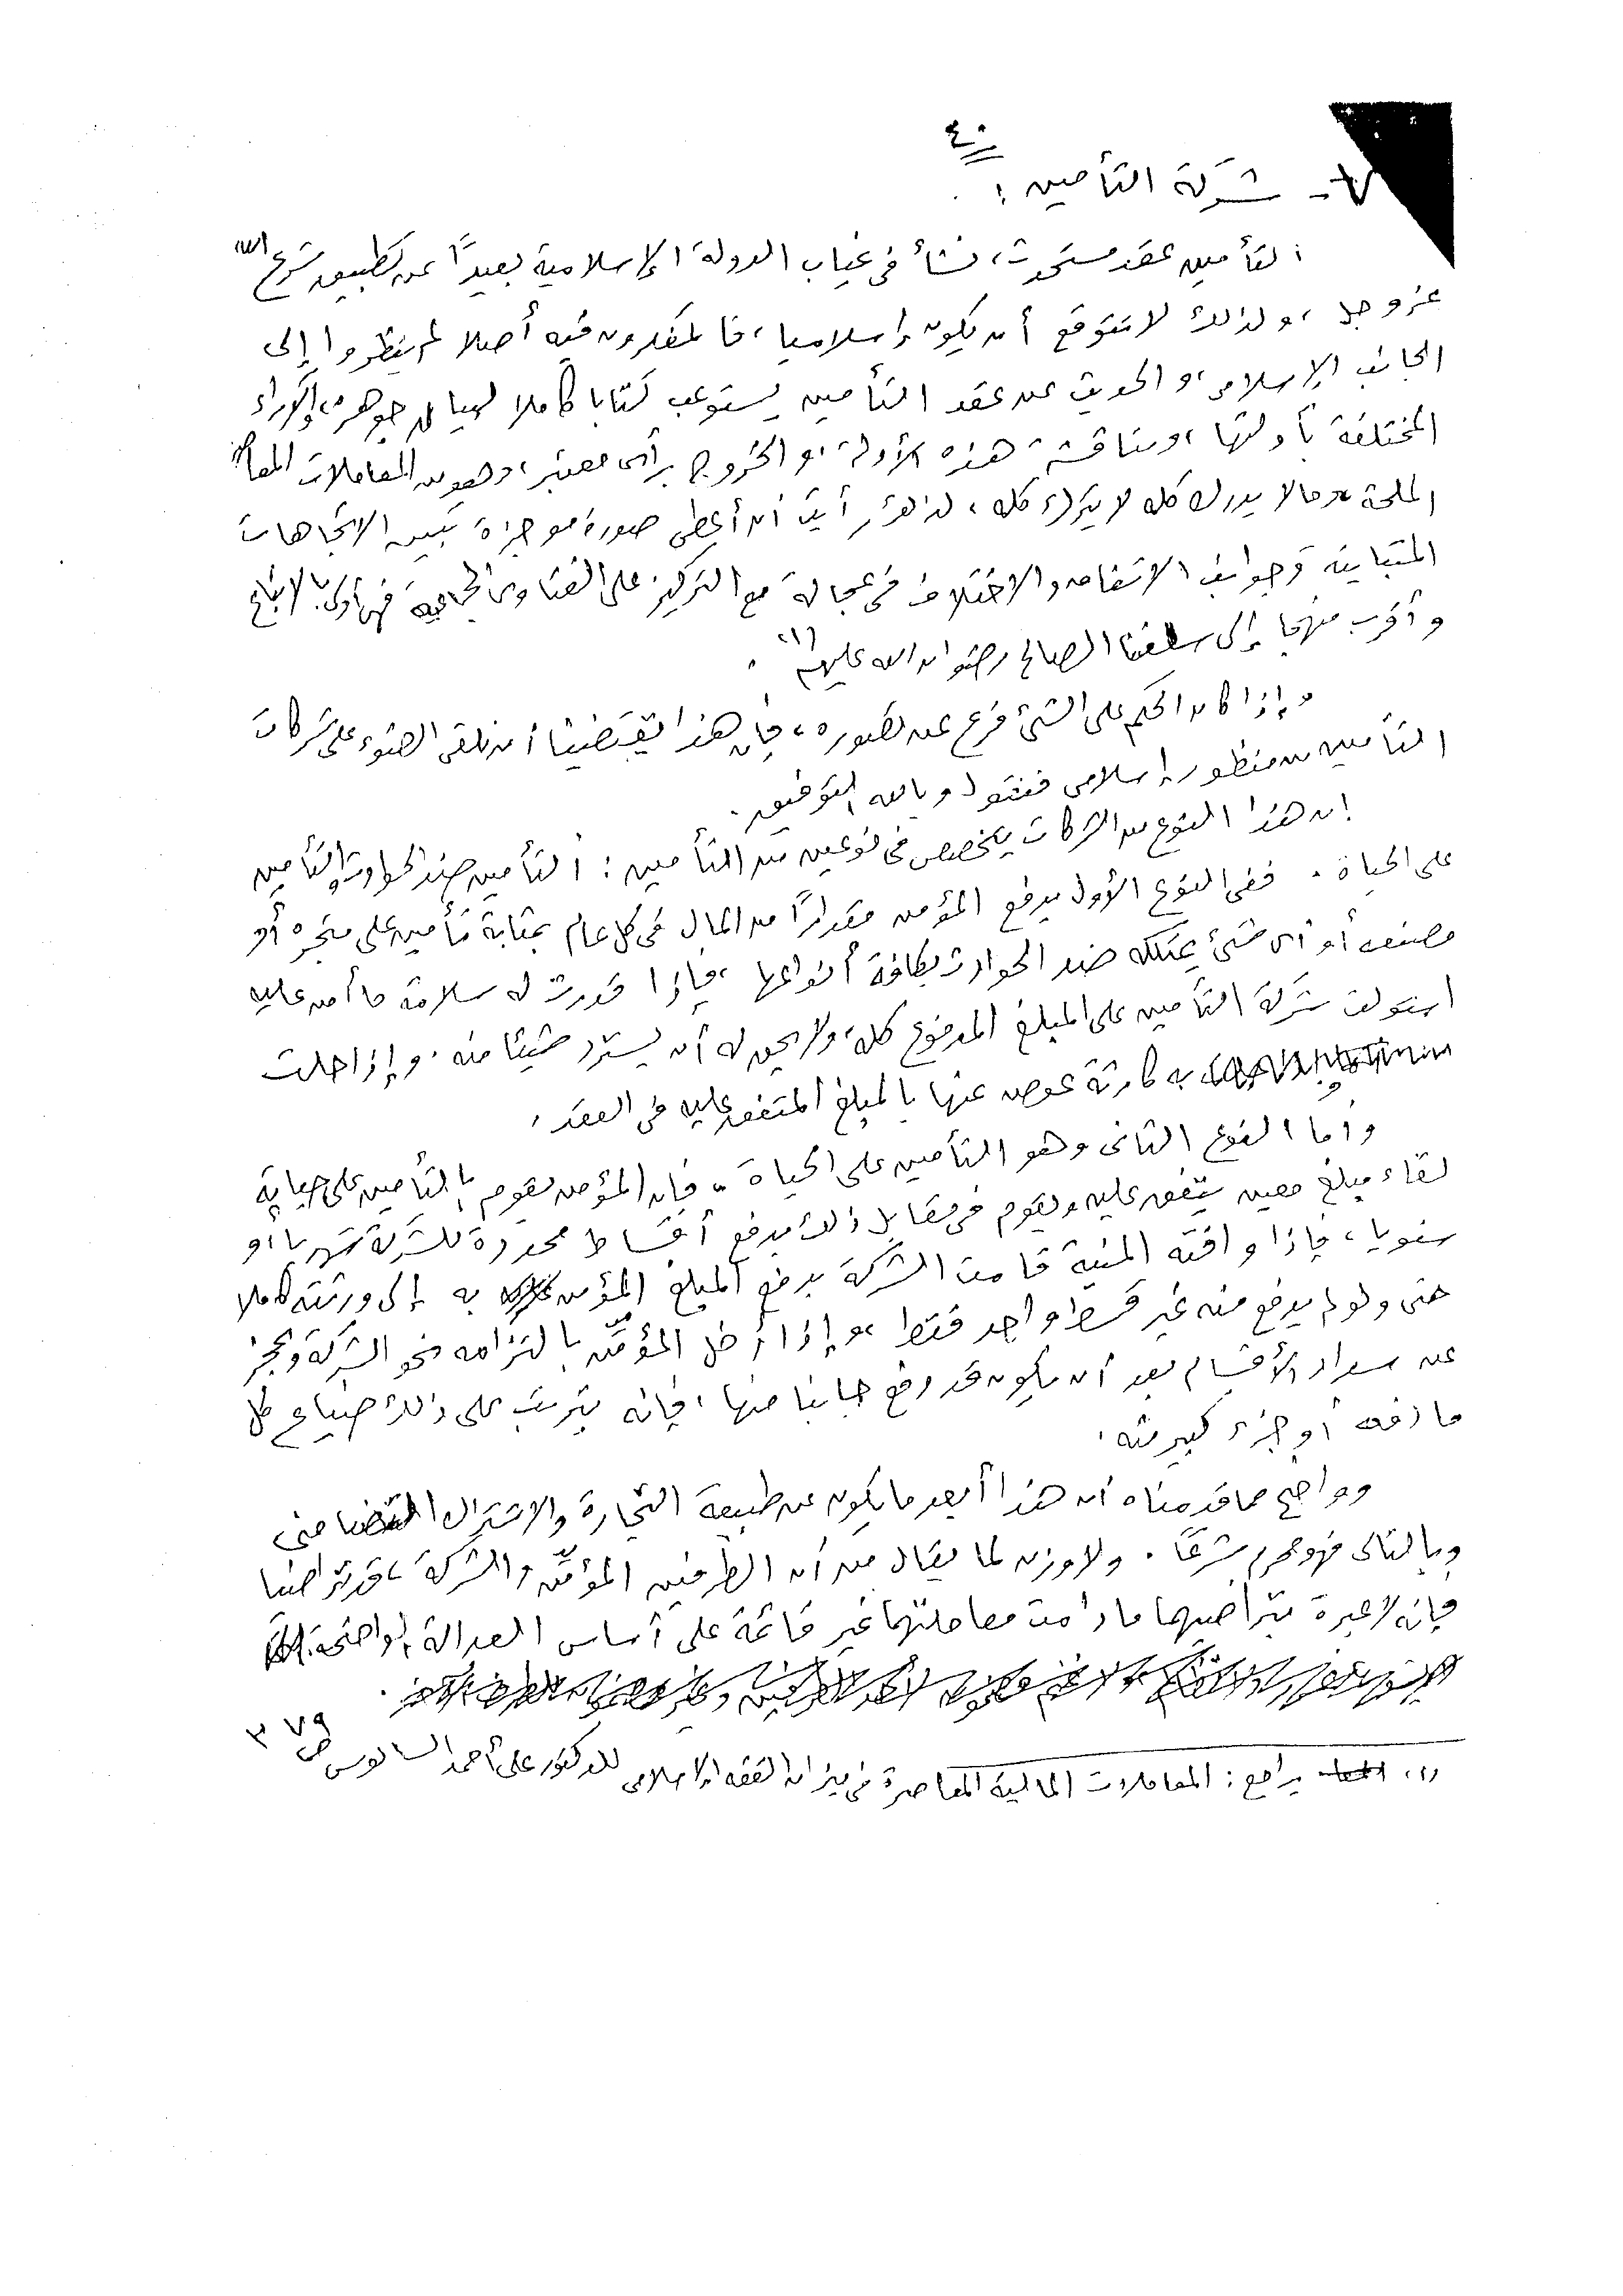 ٤٠
٧- شركة التأمين :
التأمين عقد مستحدث، نشأ فى غياب الدولة الإسلامية بعيداً عن تطبيق شرع الله
عز وجل ، ولذلك لا نتوقع أن يكون إسلاميا ، فالمفكرون فيه أصلا لم ينظروا إلى
الجانب الإسلامى ، والحديث عن عقد التأمين يستوعب كتابا كاملا لبيان جوهره ، والآراء
المختلفة بأدلتها ، ومناقشة هذه الأدلة ، والخروج برأى معتبر ، وهو من المعاملات المعاصرة
الملحة وما لا يدرك كله لا يترك كله ، لذا رأيت أن أعطى صورة موجزة تبين الاتجاهات
المتباينة وجوانب الاتفاق والاختلاف فى عجالة مع التركيز على الفتاوى الجماعية فهى أولى بالاتباع
وأقرب منهجا إلى سلفنا الصالح رضوان الله عليهم (١) .
وإذا كان الحكم على الشئ فرع عن تصوره ، فإن هذا يقتضينا أن نلقى الضوء على شركات
التأمين من منظور إسلامى فنقول وبالله التوفيق .
إن هذا النوع من الشركات يتخصص فى نوعين من التأمين : التأمين ضد الحوادث والتأمين
على الحياة . ففى النوع الأول يدفع المؤمن مقداراً من المال فى كل عام بمثابة تأمين على متجره أو
مصنعه أو أى شئ يمتلكه ضد الحوادث بكافة أنواعها ، فإذا قدرت له سلامة ما أمن عليه
استولت شركة التأمين على المبلغ المدفوع كله ، ولا يحق له أن يسترد شيئا منه . وإذا حلت
به كارثة عوض عنها بالمبلغ المتفق عليه فى العقد .
وأما النوع الثانى وهو التأمين على الحياة . فإن المؤمن يقوم بالتأمين على حياته
لقاء مبلغ معين يتفق عليه ويقوم فى مقابل ذلك بدفع أقساط محددة للشركة شهريا أو
سنويا ، فإذا وافته المنية قامت الشركة بدفع المبلغ المؤمن به إلى ورثته كاملا
حتى ولو لم يدفع منه غير قسط واحد فقط ، وإذا أخل المؤمِّن بالتزامه نحو الشركة وعجز
عن سداد الأقسام بعد أن يكون قد دفع جانبا منها ، فإنه يترتب على ذلك ضياع كل
ما دفعه أو جزء كبير منه .
وواضح مما قدمناه أن هذا أبعد ما يكون عن طبيعة التجارة والاشتراك التضامنى
وبالتالى فهو محرم شرعاً . ولا وزن لما يقال من أن الطرفين المؤمِّن والشركة ، قد تراضيا
فإنه لا عبرة بتراضيهما ما دامت معاملتهما غير قائمة على أساس العدالة الواضحة
(١) يراجع : المعاملات المالية المعاصرة فى ميزان الفقه الإسلامى للدكتور على أحمد السالوس ص ٣٧٩